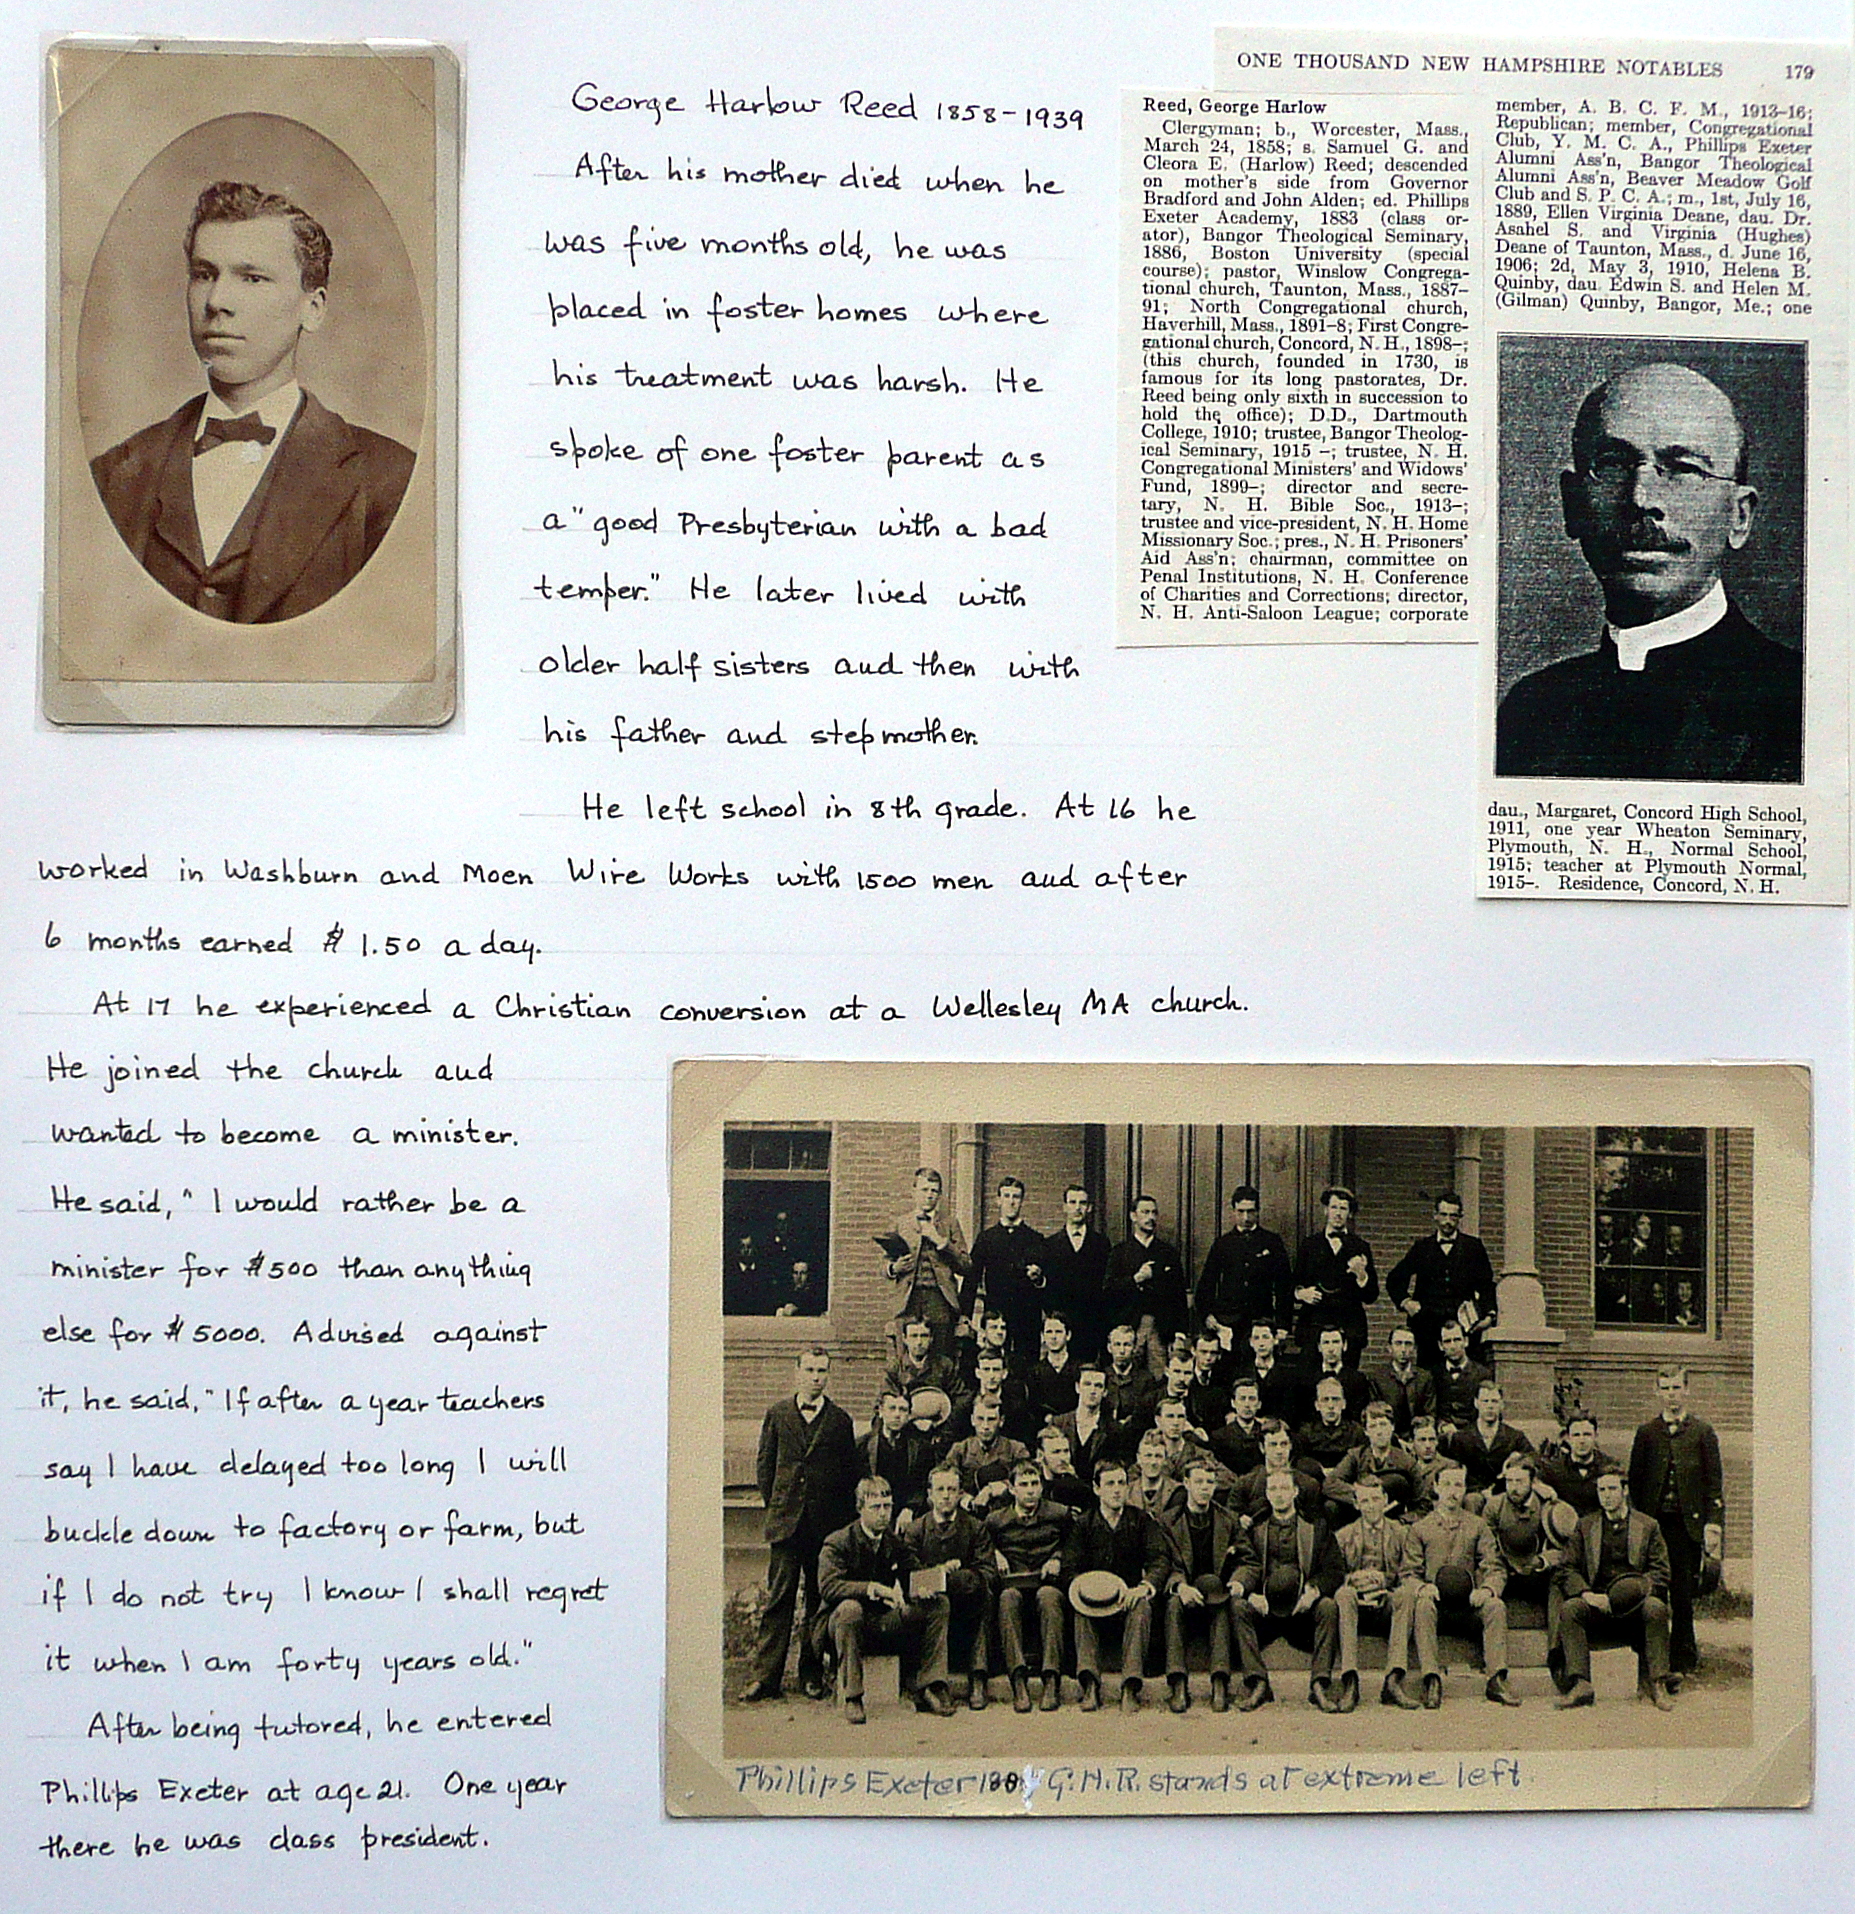 George Harlow Reed 1858-1939
After his mother died when he
was five months old, he was
placed in foster homes where
his treatment was harsh. He
spoke of one foster parent as
a "good Presbyterian with a bad
temper." He later lived with
older half sisters and then with
his father and stepmother.
He left school in 8th grade. At 16 he
worked in Washburn and Moen Wire Works with 1500 men and after
6 months earned $1.50 a day.
At 17 he experienced a Christian conversion at a Wellesley MA church.
He joined the church and
wanted to become a minister.
He said, "I would rather be a
minister for $500 than anything
else for $5000. Advised against
it, he said, "If after a year teachers
say I have delayed too long I will
buckle down to factory or farm, but
if I do not try I know I shall regret
it when I am forty years old."
After being tutored, he entered
Phillips Exeter at age 21. One year
there he was class president.
ONE THOUSAND NEW HAMPSHIRE NOTABLES 179
Reed, George Harlow
Clergyman; b., Worcester, Mass.,
March 24, 1858; s. Samuel G. and
Cleora E. (Harlow) Reed; descended
on mother's side from Governor
Bradford and John Alden; ed. Phillips
Exeter Academy, 1883 (class or-
ator), Bangor Theological Seminary,
1886, Boston University (special
course); pastor, Winslow Congrega-
tional church, Taunton, Mass., 1887-
91; North Congregational church,
Haverhill, Mass., 1891-8; First Congre-
gational church, Concord, N. H., 1898-;
(this church, founded in 1730, is
famous for its long pastorates, Dr.
Reed being only sixth in succession to
hold the office); D.D., Dartmouth
College, 1910; trustee, Bangor Theolog-
ical Seminary, 1915 -; trustee, N. H.
Congregational Ministers' and Widows'
Fund, 1899-; director and secre-
tary, N. H. Bible Soc., 1913-;
trustee and vice-president, N. H. Home
Missionary Soc.; pres., N. H. Prisoners'
Aid Ass'n; chairman, committee on
Penal Institutions, N. H. Conference
of Charities and Corrections; director,
N. H. Anti-Saloon League; corporate
member, A. B. C. F. M., 1913-16;
Republican; member, Congregational
Club, Y. M. C. A., Phillips Exeter
Alumni Ass'n, Bangor Theological
Alumni Ass'n, Beaver Meadow Golf
Club and S. P. C. A.; m., 1st, July 16,
1889, Ellen Virginia Deane, dau. Dr.
Asahel S. and Virginia (Hughes)
Deane of Taunton, Mass., d. June 16,
1906; 2d, May 3, 1910, Helena B.
Quinby, dau. Edwin S. and Helen M.
(Gilman) Quinby, Bangor, Me.; one
dau., Margaret, Concord High School,
1911, one year Wheaton Seminary,
Plymouth, N. H., Normal School,
1915; teacher at Plymouth Normal,
1915-. Residence, Concord, N. H.
Phillips Exeter G.H.R. stands at extreme left.